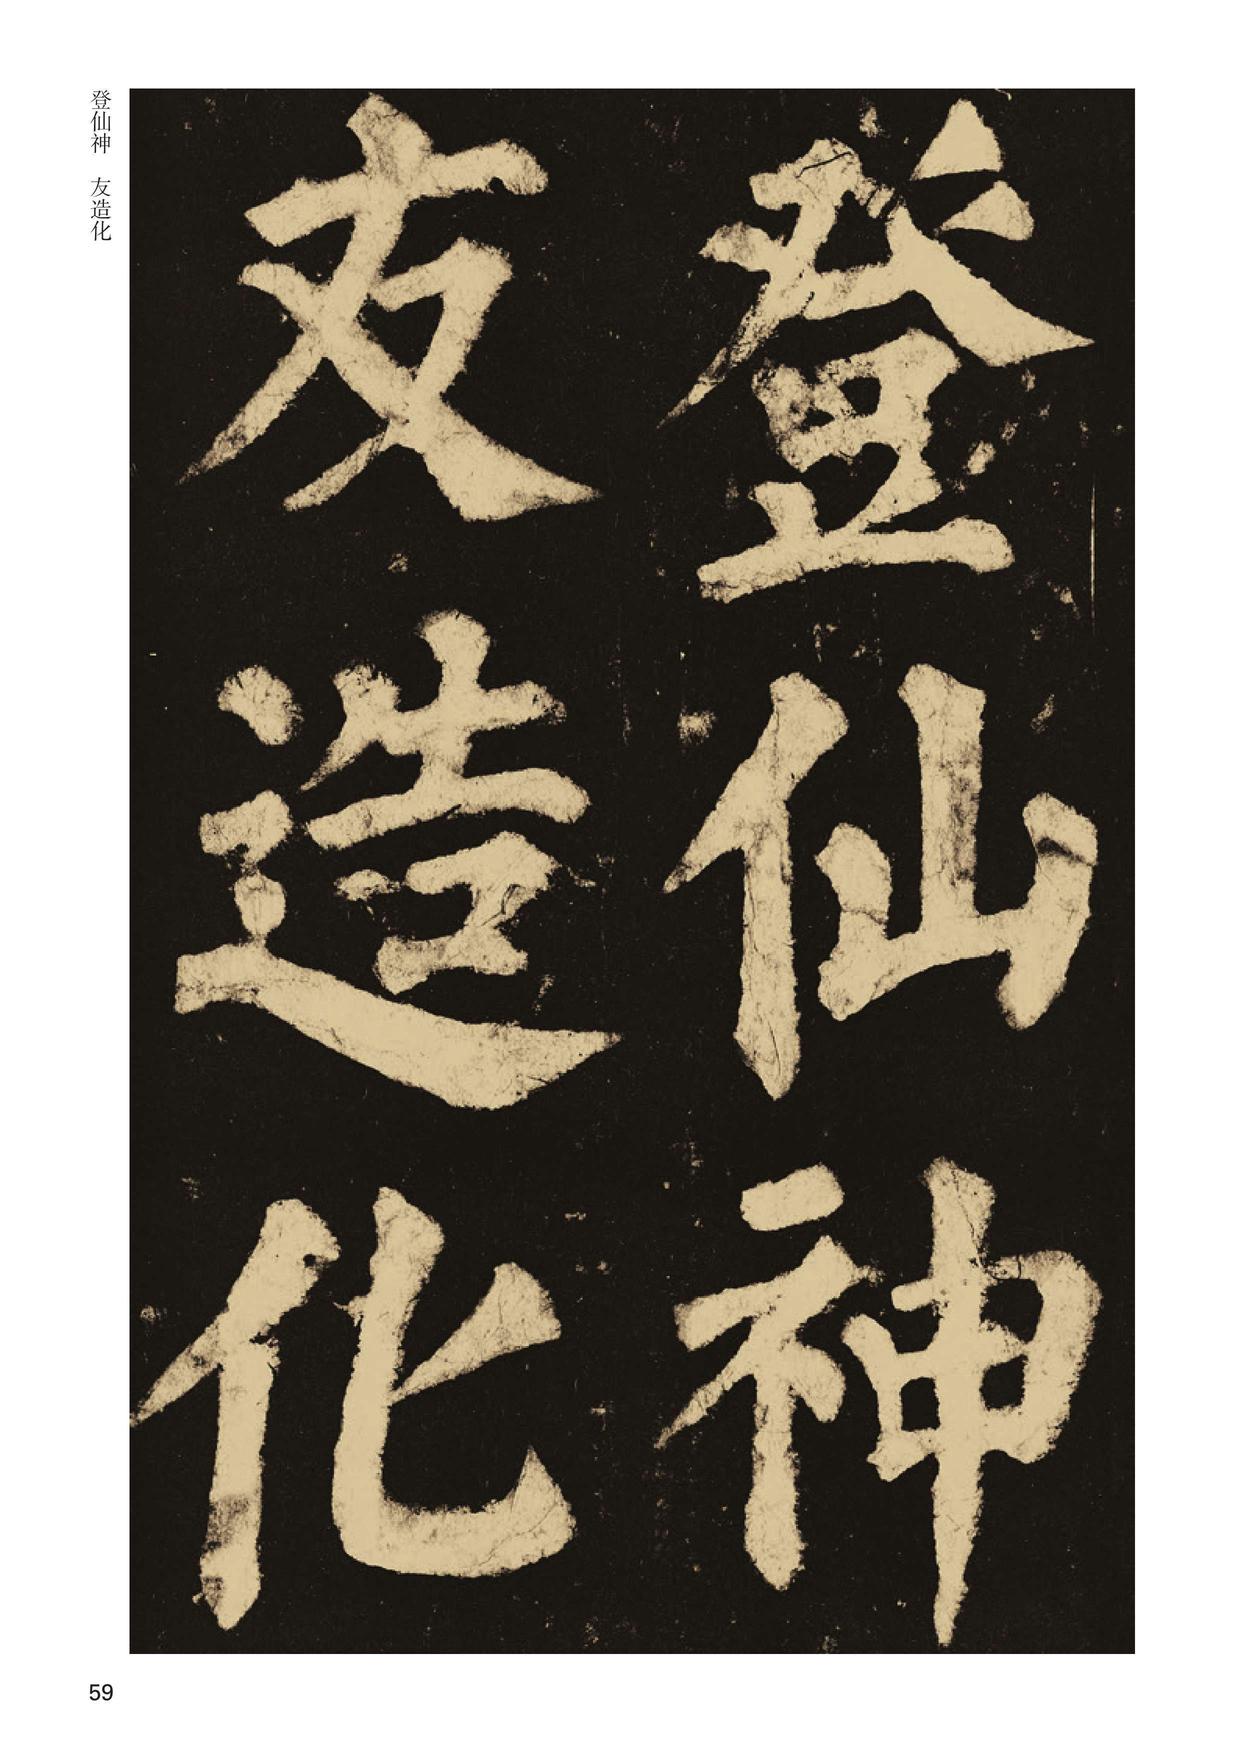 登仙神
友造化
登仙神　友造化
59